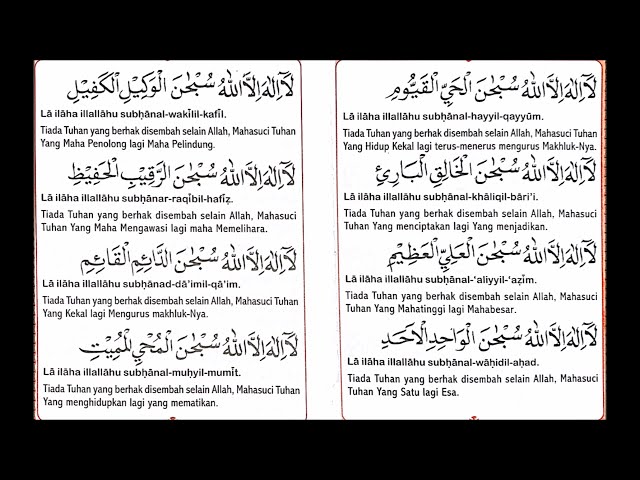 لَآ اِلٰهَ اِلَّا اللهُ سُبْحٰنَ الْحَيِّ الْقَيُّوْمِ
Lā ilāha illallāhu subḥānal-hayyil-qayyūm.
Tiada Tuhan yang berhak disembah selain Allah, Mahasuci Tuhan
Yang Hidup Kekal lagi terus-menerus mengurus Makhluk-Nya.
لَآ اِلٰهَ اِلَّا اللهُ سُبْحٰنَ الْخَالِقِ الْبَارِئِ
Lā ilāha illallāhu subḥānal-khāliqil-bāri'i.
Tiada Tuhan yang berhak disembah selain Allah, Mahasuci
Tuhan Yang menciptakan lagi Yang menjadikan.
لَآ اِلٰهَ اِلَّا اللهُ سُبْحٰنَ الْعَلِيِّ الْعَظِيْمِ
Lā ilāha illallāhu subḥānal-‘aliyyil-‘aẓīm.
Tiada Tuhan yang berhak disembah selain Allah, Mahasuci
Tuhan Yang Mahatinggi lagi Mahabesar.
لَآ اِلٰهَ اِلَّا اللهُ سُبْحٰنَ الْوَاحِدِ الْاَحَدِ
Lā ilāha illallāhu subḥānal-wāḥidil-aḥad.
Tiada Tuhan yang berhak disembah selain Allah, Mahasuci
Tuhan Yang Satu lagi Esa.
لَآ اِلٰهَ اِلَّا اللهُ سُبْحٰنَ الْوَكِيْلِ الْكَفِيْلِ
Lā ilāha illallāhu subḥānal-wakīlil-kafīl.
Tiada Tuhan yang berhak disembah selain Allah, Mahasuci Tuhan
Yang Maha Penolong lagi Maha Pelindung.
لَآ اِلٰهَ اِلَّا اللهُ سُبْحٰنَ الرَّقِيْبِ الْحَفِيْظِ
Lā ilāha illallāhu subḥānar-raqībil-hafīẓ.
Tiada Tuhan yang berhak disembah selain Allah, Mahasuci
Tuhan Yang Maha Mengawasi lagi maha Memelihara.
لَآ اِلٰهَ اِلَّا اللهُ سُبْحٰنَ الدَّائِمِ الْقَائِمِ
Lā ilāha illallāhu subḥānad-dā'imil-qā'im.
Tiada Tuhan yang berhak disembah selain Allah, Mahasuci Tuhan
Yang Kekal lagi Mengurus makhluk-Nya.
لَآ اِلٰهَ اِلَّا اللهُ سُبْحٰنَ الْمُحْيِ الْمُمِيْتِ
Lā ilāha illallāhu subḥānal-muḥyil-mumīt.
Tiada Tuhan yang berhak disembah selain Allah, Mahasuci Tuhan
Yang menghidupkan lagi yang mematikan.